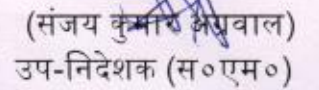 (संजय कुमार अग्रवाल)
उप-निदेशक (स०एम०)